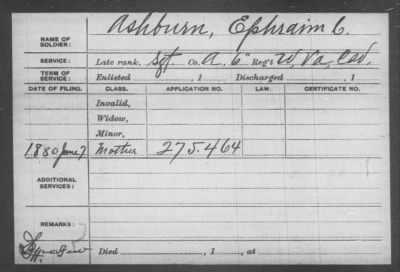 NAME OF SOLDIER: Ashburn, Ephraim C.
SERVICE: Late rank, Sgt. Co. A, 6" Reg't W. Va. Cav.
TERM OF SERVICE: Enlisted , 1 Discharged , 1
DATE OF FILING. CLASS. APPLICATION NO. LAW. CERTIFICATE NO.
Invalid,
Widow,
Minor,
1880 June 7 Mother 275.464
ADDITIONAL SERVICES:
REMARKS:
Died , 1 , at